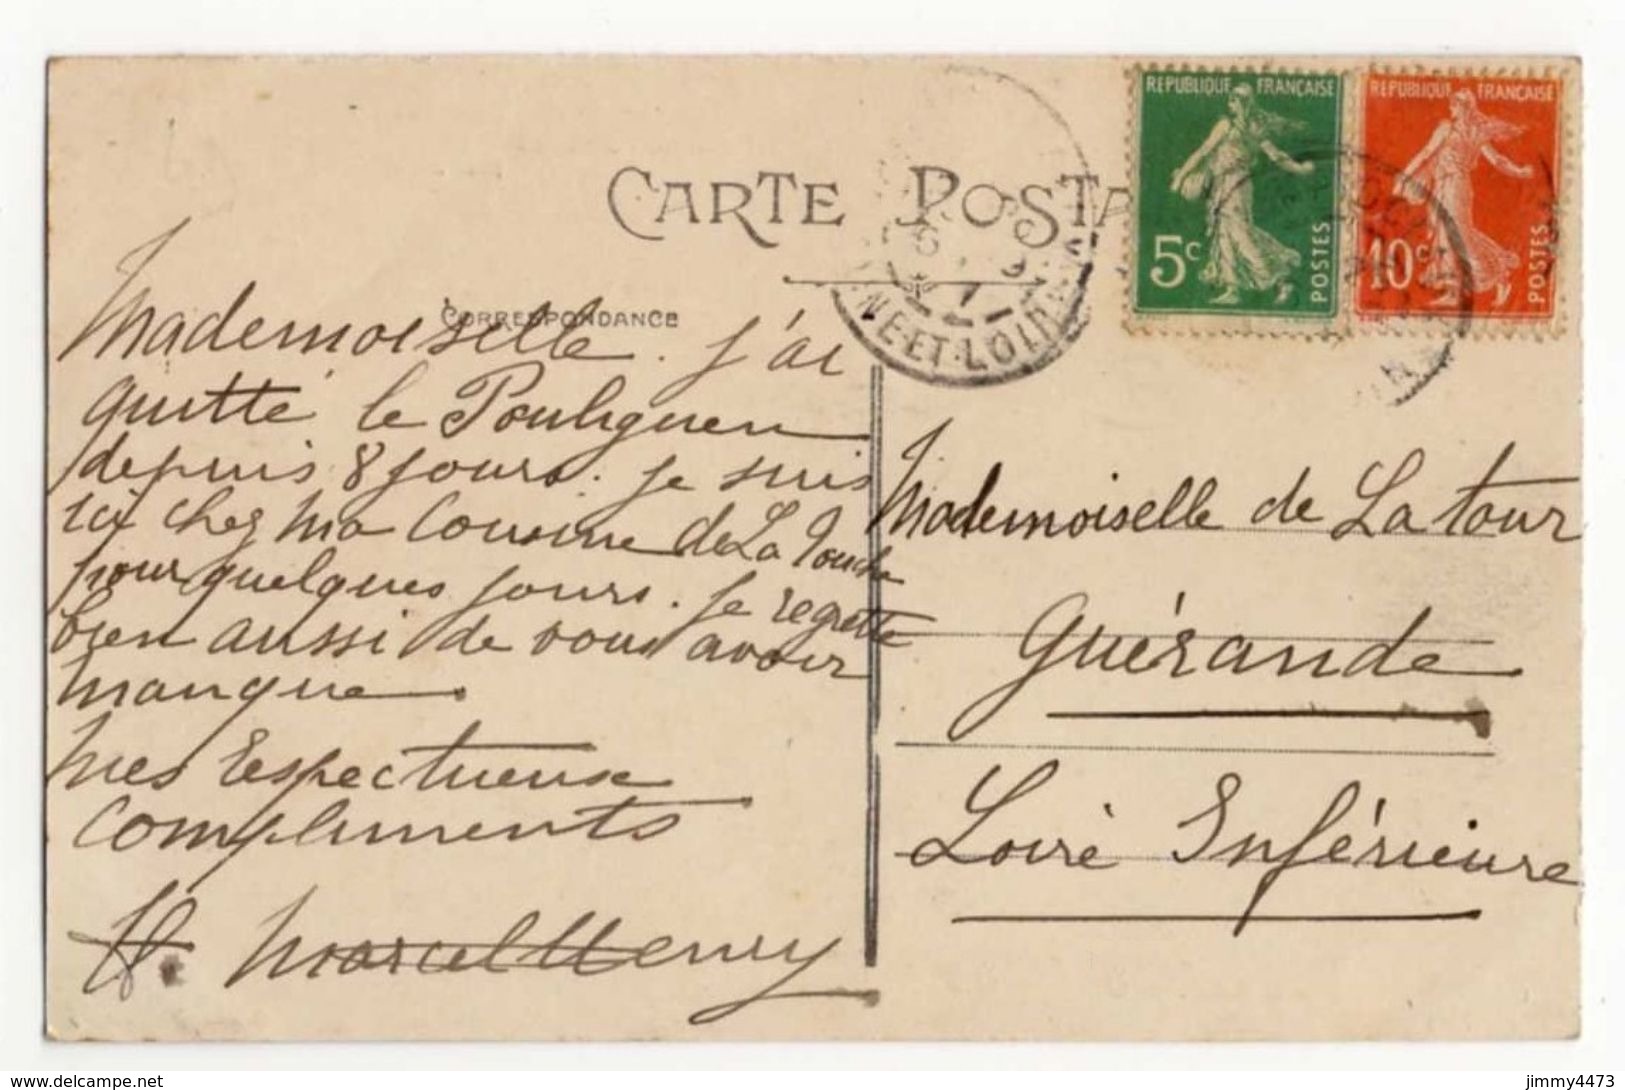 CARTE POSTA
CORRESPONDANCE
REPUBLIQUE FRANÇAISE
5c
POSTES
REPUBLIQUE FRANÇAISE
10c
POSTES
NE-ET-LOIR
Mademoiselle. j'ai
quitté le Pouliguen
depuis 8 jours. je suis
ici chez ma cousine de La Touche
pour quelques jours. je regrette
bien aussi de vous avoir
manque.
mes respectueuse
compliments
H. Marcel Henry
Mademoiselle de La tour
Guérande
Loire Inférieure
delcampe.net
jimmy4473